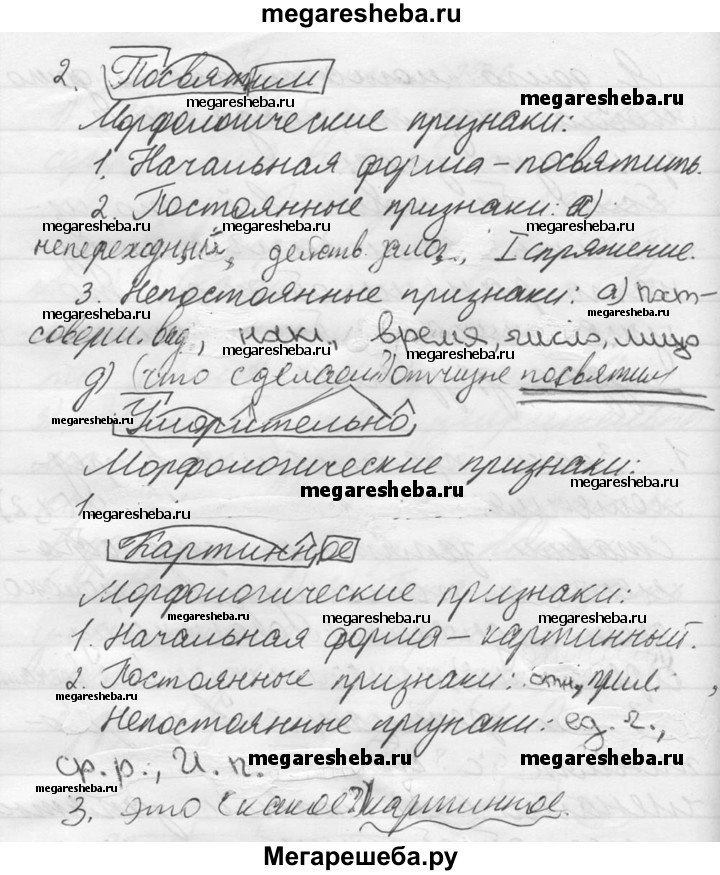 megaresheba.ru
2. Посвятим
megaresheba.ru megaresheba.ru
Морфологические признаки:
megaresheba.ru
1. Начальная форма – посвятить.
megaresheba.ru
2. Постоянные признаки:
megaresheba.ru megaresheba.ru megaresheba.ru
непереходный, действ. залог, I спряжение.
megaresheba.ru
3. Непостоянные признаки: а)
megaresheba.ru megaresheba.ru
соверш. вид, накл., время, число, лицо
megaresheba.ru
д) (что сделаем?) отчизне посвятим
megaresheba.ru megaresheba.ru
Уморительно
megaresheba.ru
Морфологические признаки:
megaresheba.ru megaresheba.ru
1.
megaresheba.ru
Картинное
megaresheba.ru
Морфологические признаки:
megaresheba.ru megaresheba.ru megaresheba.ru
1. Начальная форма – картинный.
megaresheba.ru
2. Постоянные признаки: отн. прил.
megaresheba.ru
Непостоянные признаки: ед. ч.,
ср. р., И. п.
megaresheba.ru megaresheba.ru
megaresheba.ru
3. Это (какое?) картинное.
Мегарешеба.ру